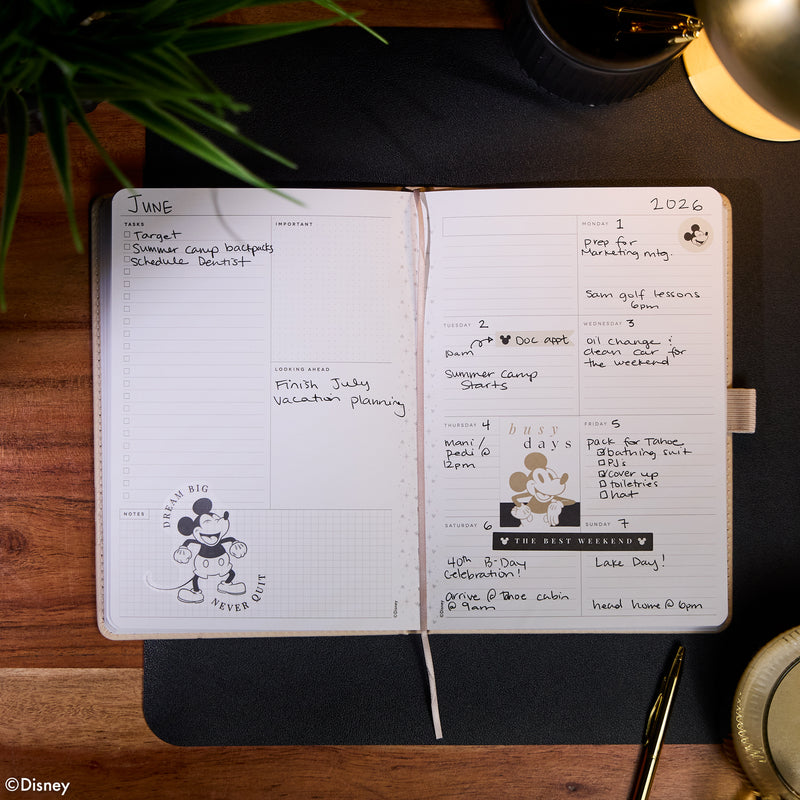 JUNE
TASKS
Target
Summer camp backpacks
Schedule Dentist
IMPORTANT
LOOKING AHEAD
Finish July
vacation planning
NOTES
DREAM BIG
NEVER QUIT
©Disney
2026
MONDAY 1
prep for
Marketing mtg.
Sam golf lessons
6pm
TUESDAY 2
10am
DOC appt
Summer camp
Starts
WEDNESDAY 3
oil change &
clean car for
the weekend
THURSDAY 4
mani/
pedi @
12pm
busy
days
FRIDAY 5
pack for Tahoe
bathing suit
PJ's
cover up
toiletries
hat
SATURDAY 6
SUNDAY 7
THE BEST WEEKEND
40th B-Day
Celebration!
arrive @ Tahoe cabin
@ 9am
Lake Day!
head home @ 6pm
©Disney
©Disney